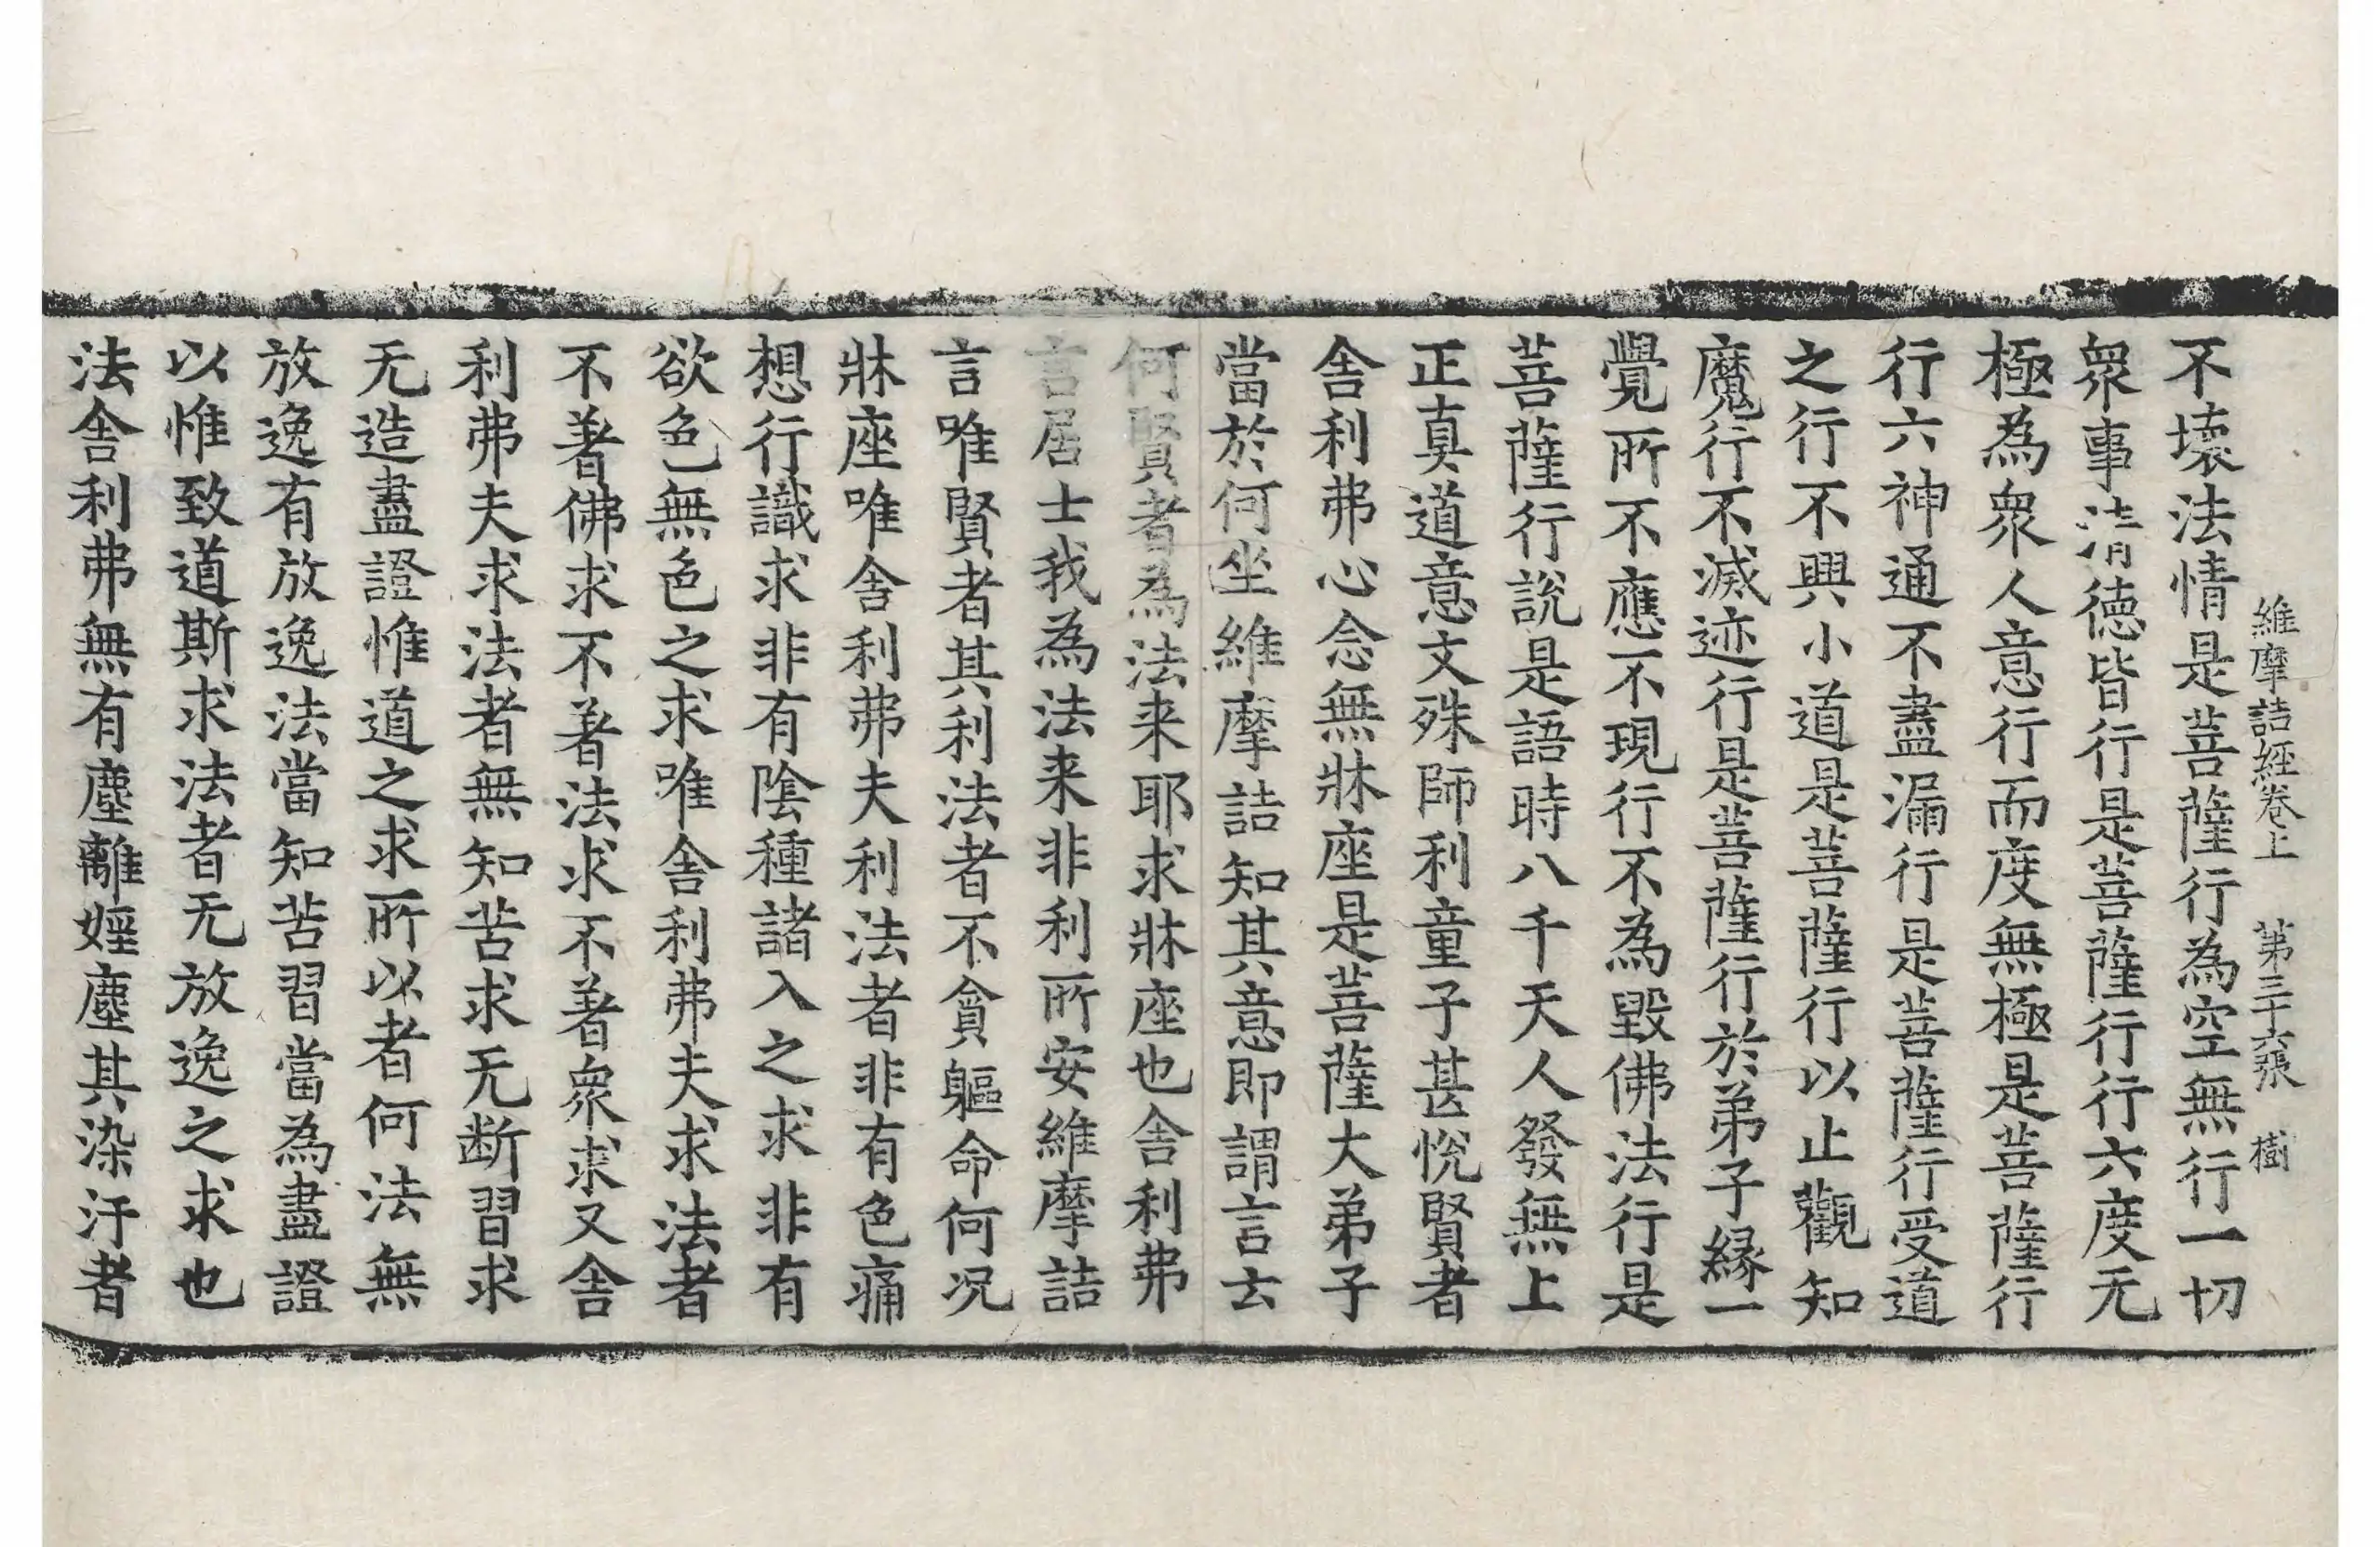 維摩詰經卷上 第三十六張 樹
不壞法情是菩薩行為空無行一切
眾事清德皆行是菩薩行行六度无
極為眾人意行而度無極是菩薩行
行六神通不盡漏行是菩薩行受道
之行不興小道是菩薩行以止觀知
魔行不滅迹行是菩薩行於弟子緣一
覺所不應不現行不為毀佛法行是
菩薩行說是語時八千天人發無上
正真道意文殊師利童子甚悅賢者
舍利弗心念無牀座是菩薩大弟子
當於何坐維摩詰知其意即謂言云
何賢者為法来耶求牀座也舍利弗
言居士我為法来非利所安維摩詰
言唯賢者其利法者不貪軀命何況
牀座唯舍利弗夫利法者非有色痛
想行識求非有陰種諸入之求非有
欲色無色之求唯舍利弗夫求法者
不著佛求不著法求不著眾求又舍
利弗夫求法者無知苦求无断習求
无造盡證惟道之求所以者何法無
放逸有放逸法當知苦習當為盡證
以惟致道斯求法者无放逸之求也
法舍利弗無有塵離婬塵其染汙者